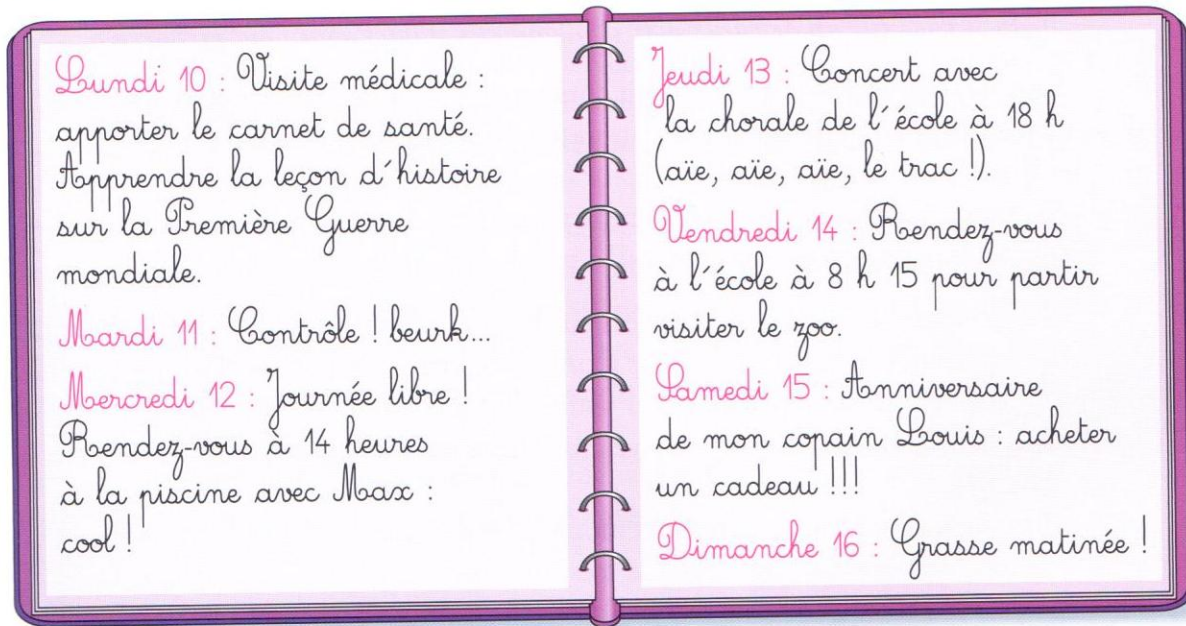 Lundi 10 : Visite médicale :
apporter le carnet de santé.
Apprendre la leçon d'histoire
sur la Première Guerre
mondiale.
Mardi 11 : Contrôle ! beurk...
Mercredi 12 : Journée libre !
Rendez-vous à 14 heures
à la piscine avec Max :
cool !
Jeudi 13 : Concert avec
la chorale de l'école à 18 h
(aïe, aïe, aïe, le trac !).
Vendredi 14 : Rendez-vous
à l'école à 8 h 15 pour partir
visiter le zoo.
Samedi 15 : Anniversaire
de mon copain Louis : acheter
un cadeau !!!
Dimanche 16 : Grasse matinée !